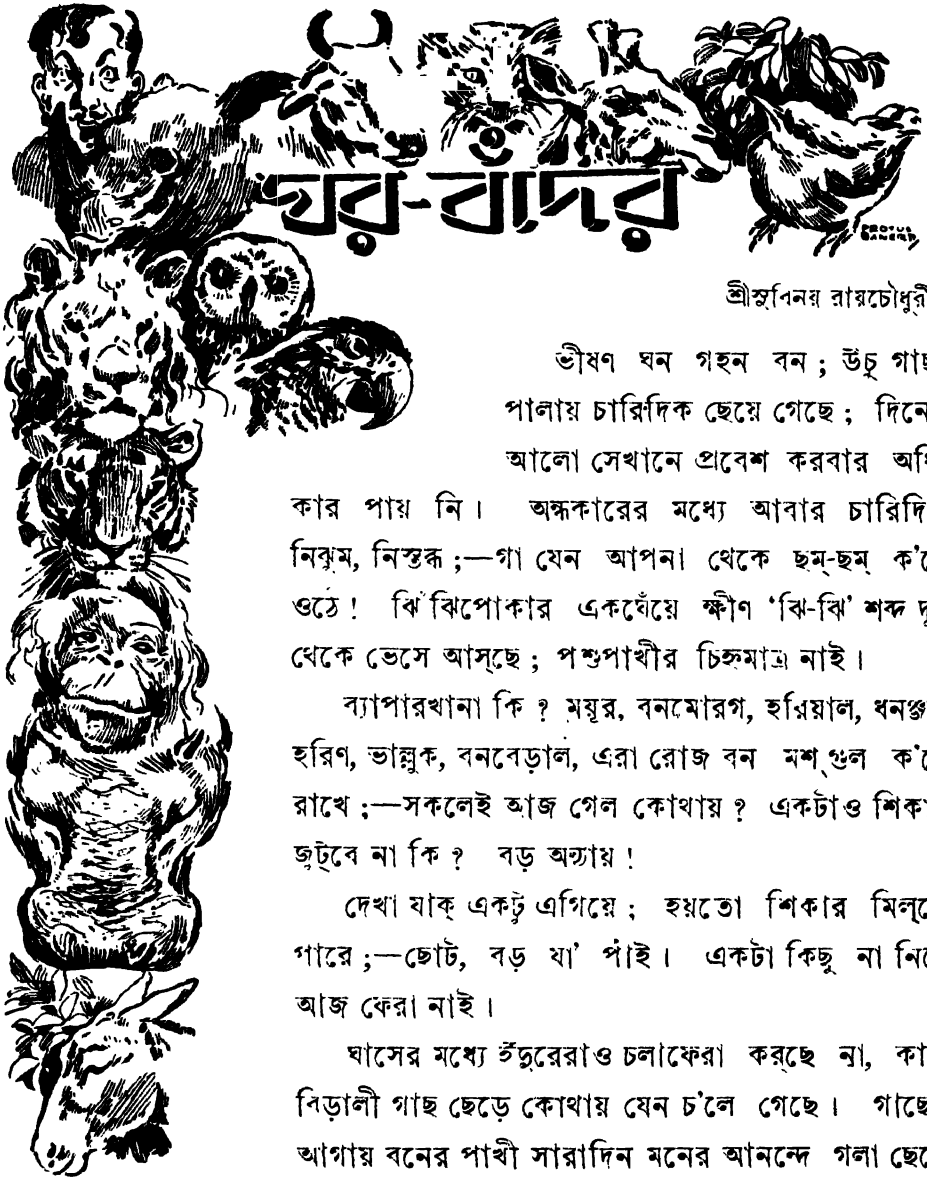 ঘর-বাঁদর
শ্রীসুবিনয় রায়চৌধুরী
ভীষণ ঘন গহন বন ; উঁচু গাছ
পালায় চারিদিক ছেয়ে গেছে ; দিনে
আলো সেখানে প্রবেশ করবার অধি
কার পায় নি । অন্ধকারের মধ্যে আবার চারিদি
নিঝুম, নিস্তব্ধ ;—গা যেন আপনা থেকে ছম্-ছম্ ক'রে
ওঠে ! ঝিঁঝিপোকার একঘেঁয়ে ক্ষীণ 'ঝি-ঝি' শব্দ দূ
থেকে ভেসে আস্‌ছে ; পশুপাখীর চিহ্নমাত্র নাই ।
ব্যাপারখানা কি ? ময়ূর, বনমোরগ, হরিয়াল, ধনঞ্জ
হরিণ, ভাল্লুক, বনবেড়াল, এরা রোজ বন মশ্‌গুল ক'রে
রাখে ;—সকলেই আজ গেল কোথায় ? একটাও শিকা
জুট্‌বে না কি ? বড় অন্যায় !
দেখা যাক্ একটু এগিয়ে ; হয়তো শিকার মিল্‌তে
পারে ;—ছোট, বড় যা' পাই । একটা কিছু না নিয়ে
আজ ফেরা নাই ।
ঘাসের মধ্যে ইঁদুরেরাও চলাফেরা কর্‌ছে না, কা
বিড়ালী গাছ ছেড়ে কোথায় যেন চ'লে গেছে । গাছে
আগায় বনের পাখী সারাদিন মনের আনন্দে গলা ছেড়ে